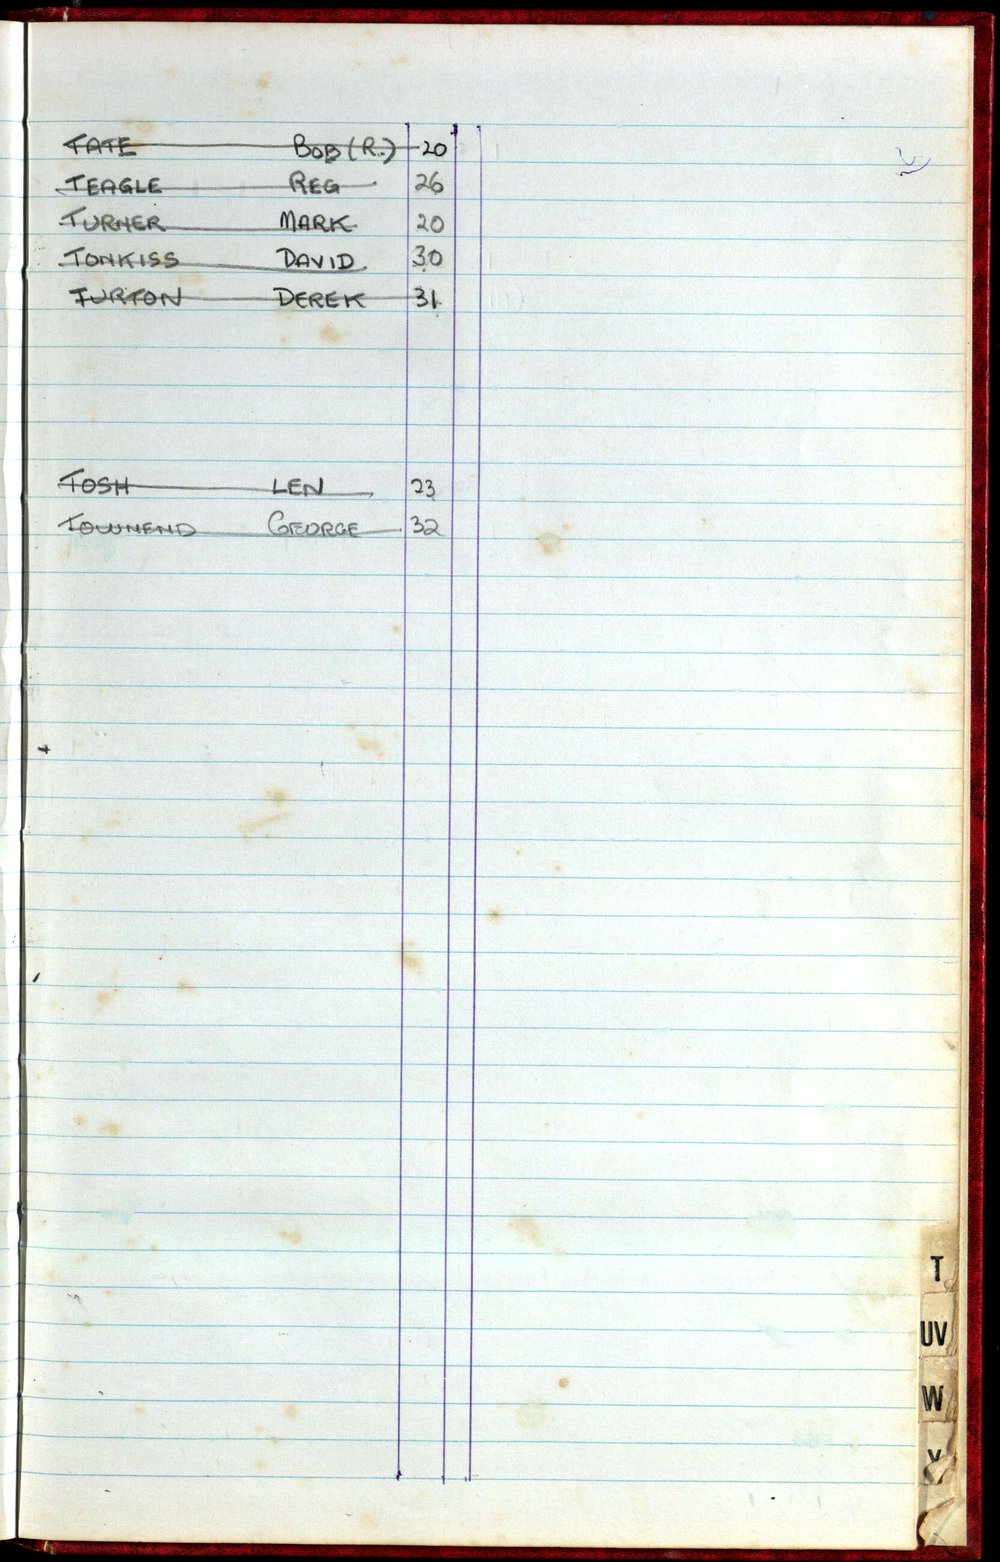 TATE BOB (R.) 20
TEAGLE REG 26
TURNER MARK 20
TONKISS DAVID 30
TURTON DEREK 31
TOSH LEN 23
TOWNEND GEORGE 32
T
UV
W